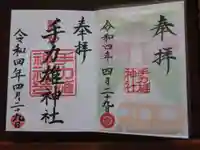 奉拝
令和四年四月二十九日
手力雄神社
奉拝
令和四年四月二十九日
手力雄神社